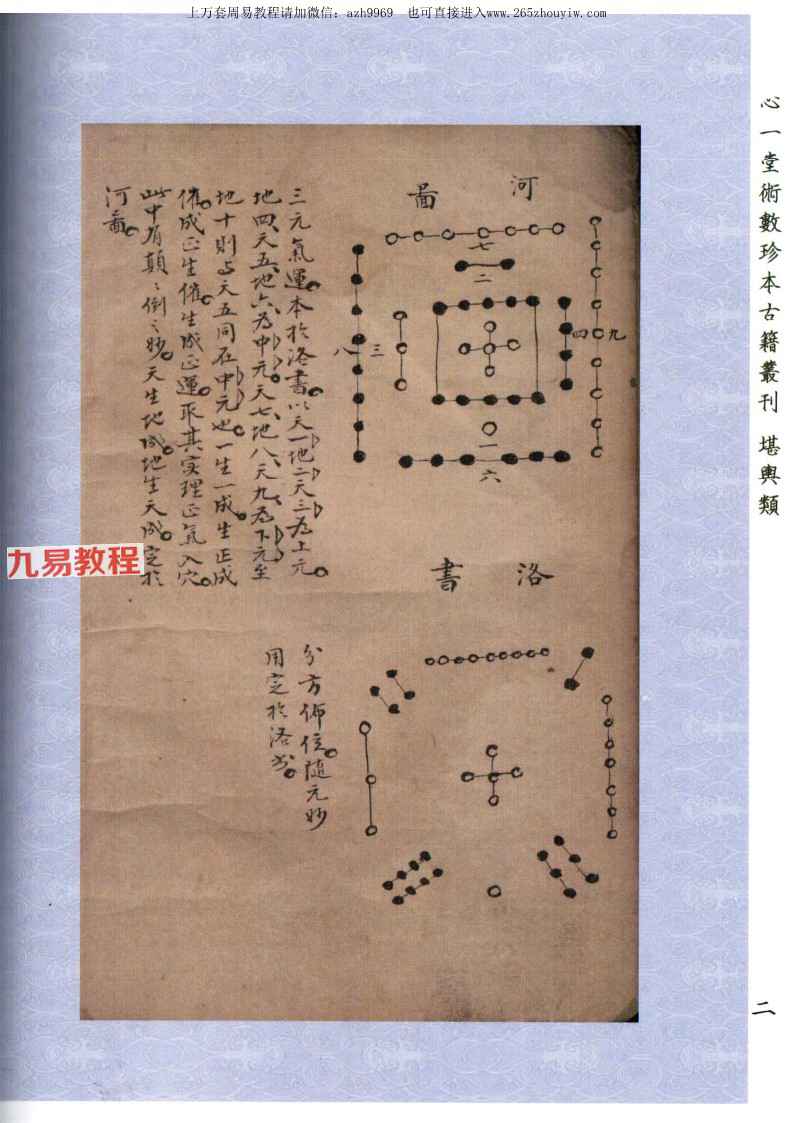 上万套周易教程请加微信：azh9969 也可直接进入www.265zhouyiw.com
心一堂術數珍本古籍叢刊 堪輿類
二
河圖
七
二
八三
四九
一
六
三元氣運本於洛書以天一地二天三為上元
地四天五地六為中元天七地八天九為下元至
地十則与天五同在中元也一生一成生正成
催成正生催生成正運取其实理正氣入穴
此中有顛〻倒〻妙天生地成地生天成定於
河啚
洛書
分方佈位隨元妙
用定於洛书
九易教程